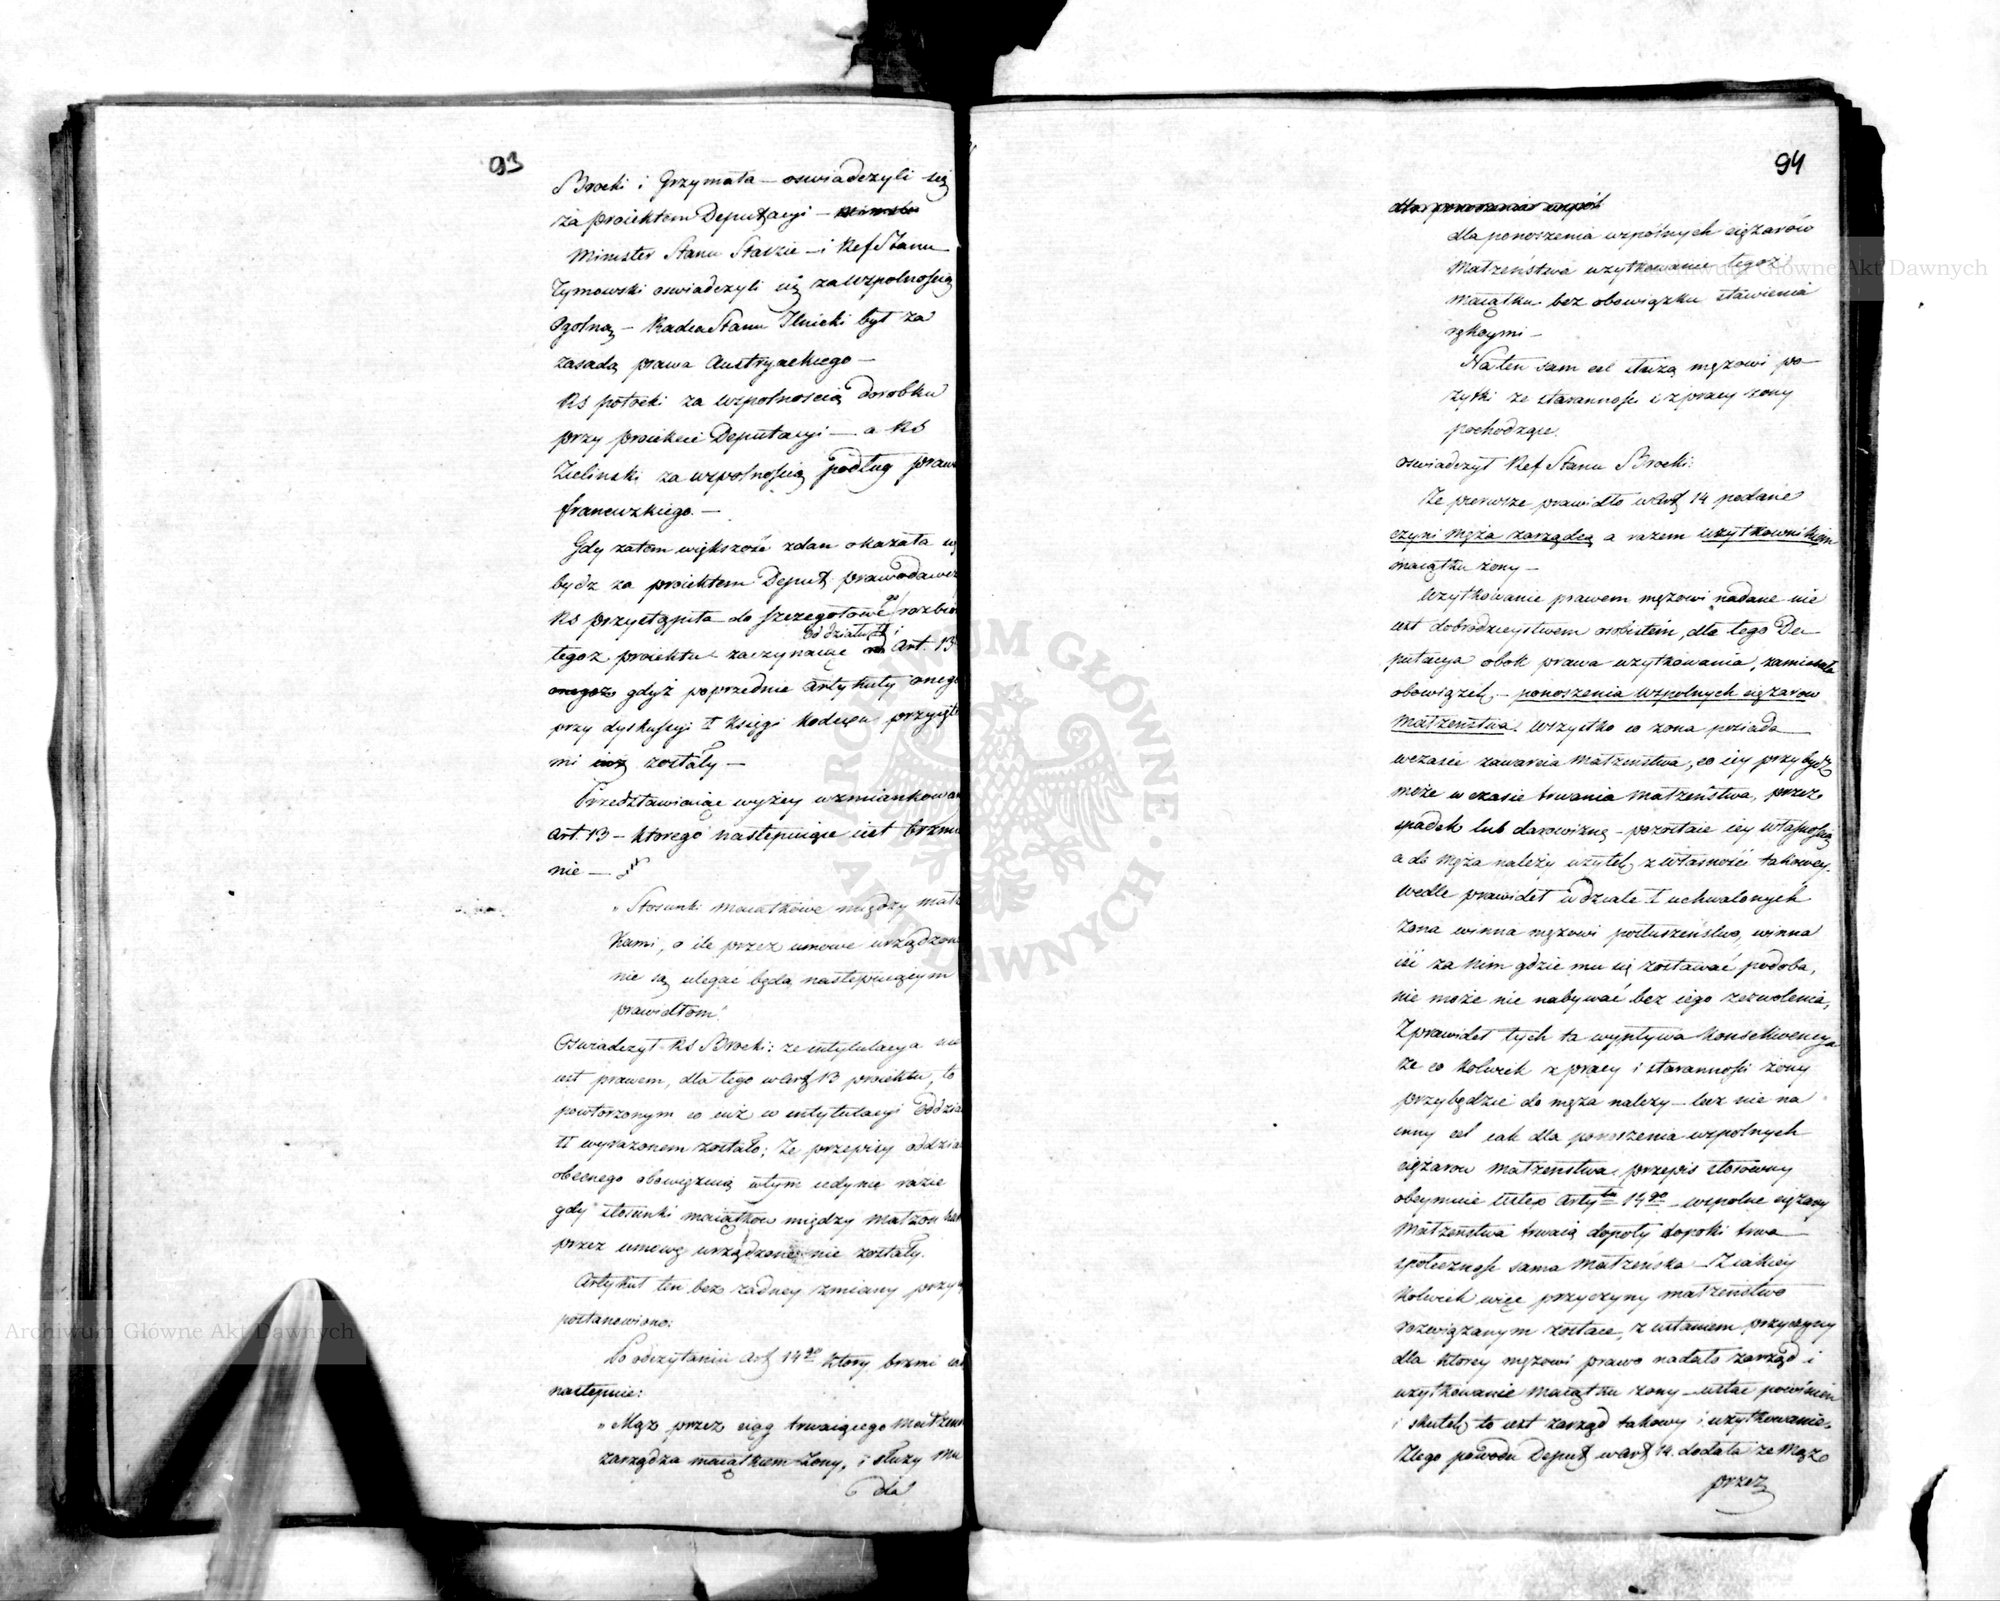 93
Brocki i Grzymała – oswiadczyli się
za proiektem Deputacyi –
Minister Stanu Staszic – i Ref Stanu
Tymowski oswiadczyli się za wzpolnością
Ogolną – Radca Stanu Ilnicki był za
zasadą prawa Austryackiego –
RS potocki za wzpolnością dorobku
przy proiekcie Deputacyi – a RS
Zielinski za wzpolnością podług praw
francuzkiego. –
Gdy zatem większość zdan okazała
bydz za proiektem Deput. prawodawcz
RS przystąpiła do szczegołowego rozbio
oddziału II i
tegoz proiektu zaczynaiąc Art. 13
onegoz gdyż poprzednie Artykuły onego
przy dyskussyi I Księgi Kodexu przyięte
mi iuż zostały –
Przedstawiaiąc wyżey wzmiankowan
Art. 13 – ktorego następuiące iest brzmie
nie –
„ Stosunki maiątkowe między małż
kami, o ile przez umowę urządzone
nie są, ulegać będą następuiącym
prawidłom."
Oswiadczył RS Brocki: ze intytulacya nie
iest prawem, dla tego w Art 13 proiektu, to
powtorzonym co iuż w intytulacyi Oddzia
II wyrazonem zostało; Ze przepisy oddzia
obecnego obowiązuią w tym iedynie razie
gdy stosunki maiątkow między małzonkam
przez umowę urządzone nie zostały.
Artykuł ten bez zadney zmiany przy
postanowiono:
Po odczytaniu Art 14go ktory brzmi iak
następnie:
„ Mąz przez ciąg trwaiącego małżen
zarządza maiątkiem żony, i służy mu
dla
94
dla ponoszenia wzpól
dla ponoszenia wzpólnych ciężarów
Małżeństwa uzytkowanie tegoż
maiątku bez obowiązku stawienia
rękoymi –
Na ten sam cel służą mężowi po–
żytki ze staranności i z pracy zony
pochodzące.
oswiadczył Ref Stanu Brocki:
Ze pierwsze prawidło w Art 14 podane
czyni męża zarządcą a razem uzytkownikiem
maiątku żony –
Uzytkowanie prawem męzowi nadane nie
iest dobrodzieystwem osobistém, dla tego De–
putacya obok prawa uzytkowania, zamieściła
obowiązek – ponoszenia wzpolnych ciężarow
małżeństwa. Wszystko co zona posiada
w czasie zawarcia Małzenstwa, co iey przybydz
może w czasie trwania małżeństwa, przez
spadek lub darowiznę – pozostaie iey własnością
a do męża należy uzytek z własności takowey.
Wedle prawideł w dziale I uchwalonych
Zona winna męzowi posłuszeństwo, winna
iść za nim gdzie mu się zostawać podoba,
nie może nic nabywać bez iego zezwolenia,
Z prawideł tych ta wypływa konsekwencya
Ze co kolwiek z pracy i staranności żony
przybędzie do męza nalezy – lecz nie na
inny cel iak dla ponoszenia wzpolnych
ciężarow małzeństwa. przepis stosowny
obeymuie Ustęp Artyłu 14go – wzpolne ciężary
Małżeństwa trwaią dopoty dopoki trwa
społeczność sama Małzeńska – Z iakiey
kolwiek więc przyczyny małżeństwo
rozwiązanym zostaie, z ustaniem przyczyny
dla ktorey mężowi prawo nadało zarząd i
uzytkowanie maiątku żony – ustać powinien
i skutek to iest zarząd takowy i uzytkowanie.
Z tego powodu Deput w Art 14. dodała ze Mąz
przez